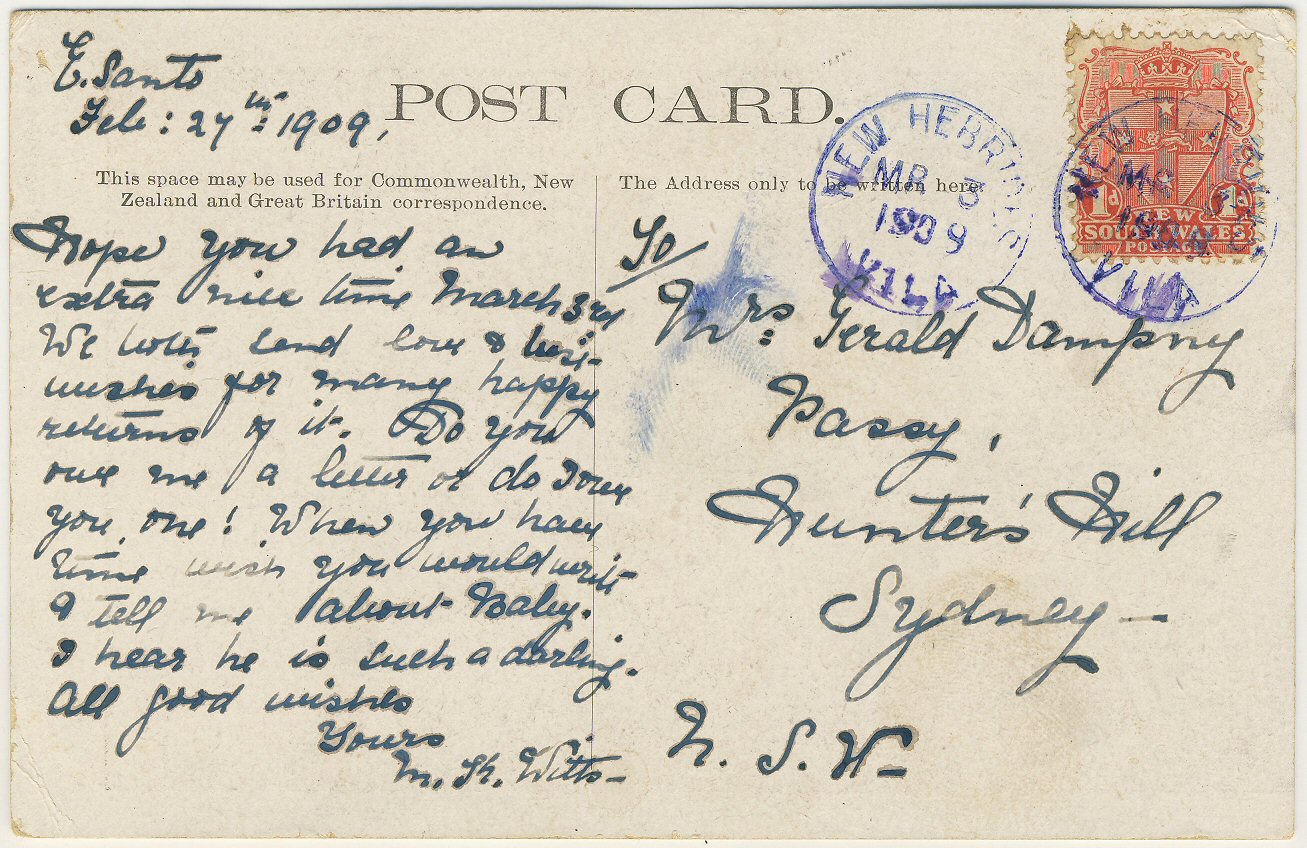 E. Santo
Feb: 27th 1909,
POST CARD.
This space may be used for Commonwealth, New
Zealand and Great Britain correspondence.
The Address only to be written here
Hope you had an
extra nice time March 3rd
We both send love & best
wishes for many happy
returns of it. Do you
owe me a letter or do I owe
you one! When you have
time wish you would write
& tell me about Baby.
I hear he is such a darling.
All good wishes
Yours
M. K. Witts
To/
Mrs: Gerald Dampny
Passy,
Hunter's Hill
Sydney—
N. S. W—
NEW HEBRIDES
MR 3
1909
VILA
NEW HEBRIDES
MR
1909
VILA
1d 1d
NEW
SOUTH WALES
POSTAGE